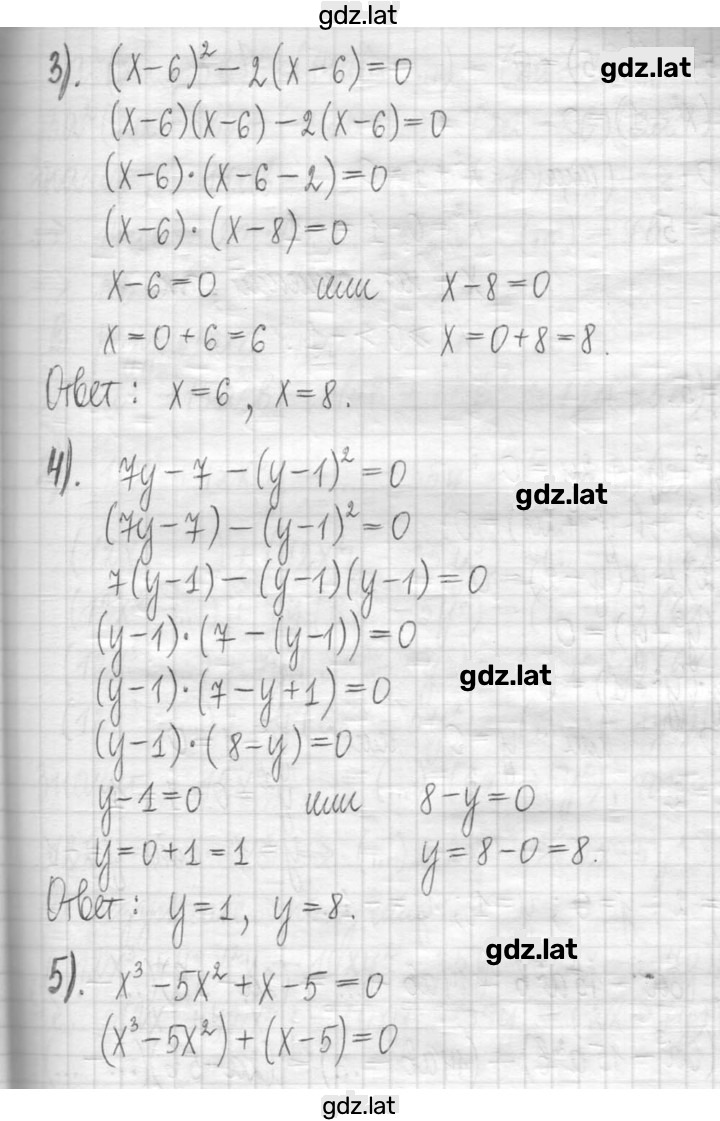 gdz.lat
3). (x-6)² - 2(x-6)=0
gdz.lat
(x-6)(x-6) - 2(x-6)=0
(x-6)·(x-6-2)=0
(x-6)·(x-8)=0
x-6=0 или x-8=0
x=0+6=6 x=0+8=8.
Ответ: x=6, x=8.
4). 7y-7-(y-1)²=0
gdz.lat
(7y-7)-(y-1)²=0
7(y-1)-(y-1)(y-1)=0
(y-1)·(7-(y-1))=0
(y-1)·(7-y+1)=0
gdz.lat
(y-1)·(8-y)=0
y-1=0 или 8-y=0
y=0+1=1 y=8-0=8.
Ответ: y=1, y=8.
gdz.lat
5). x³-5x²+x-5=0
(x³-5x²)+(x-5)=0
gdz.lat